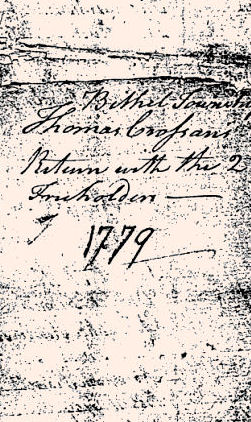 Bethel Township
Thomas Crossans
Return with the 2
Freeholders
1779